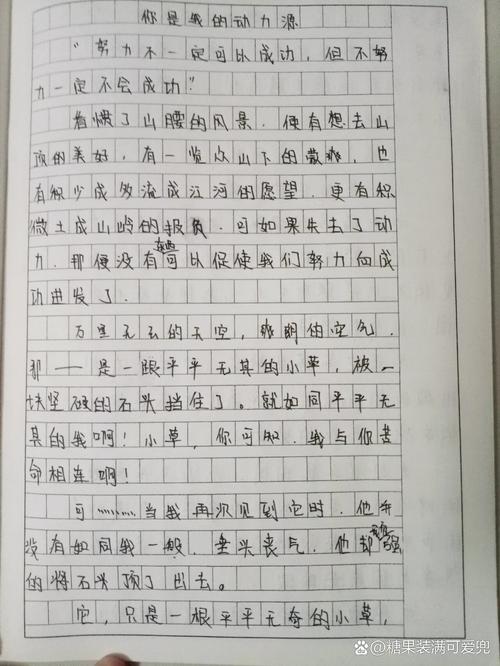 你是我的动力源
“努力不一定可以成功，但不努
力一定不会成功”
看惯了山腰的风景，便有想去山
顶的美好，有一览众山下的散爽，也
有积少成多流成江河的愿望，更有积
微土成山岭的报负，可如果失去了动
力，那便没有东西可以促使我们努力向成
功进发了．
万里无云的天空，爽朗的空气．
那——是一跟平平无其的小草，被一
块坚硬的石头挡住了。就如同平平无
其的我啊！小草，你可知，我与你苦
命相连啊！
可………当我再次见到它时，他并
没有如同我一般，垂头丧气，他却顽强
的将石头顶了出去。
它，只是一根平平无奇的小草，
@糖果装满可爱兜